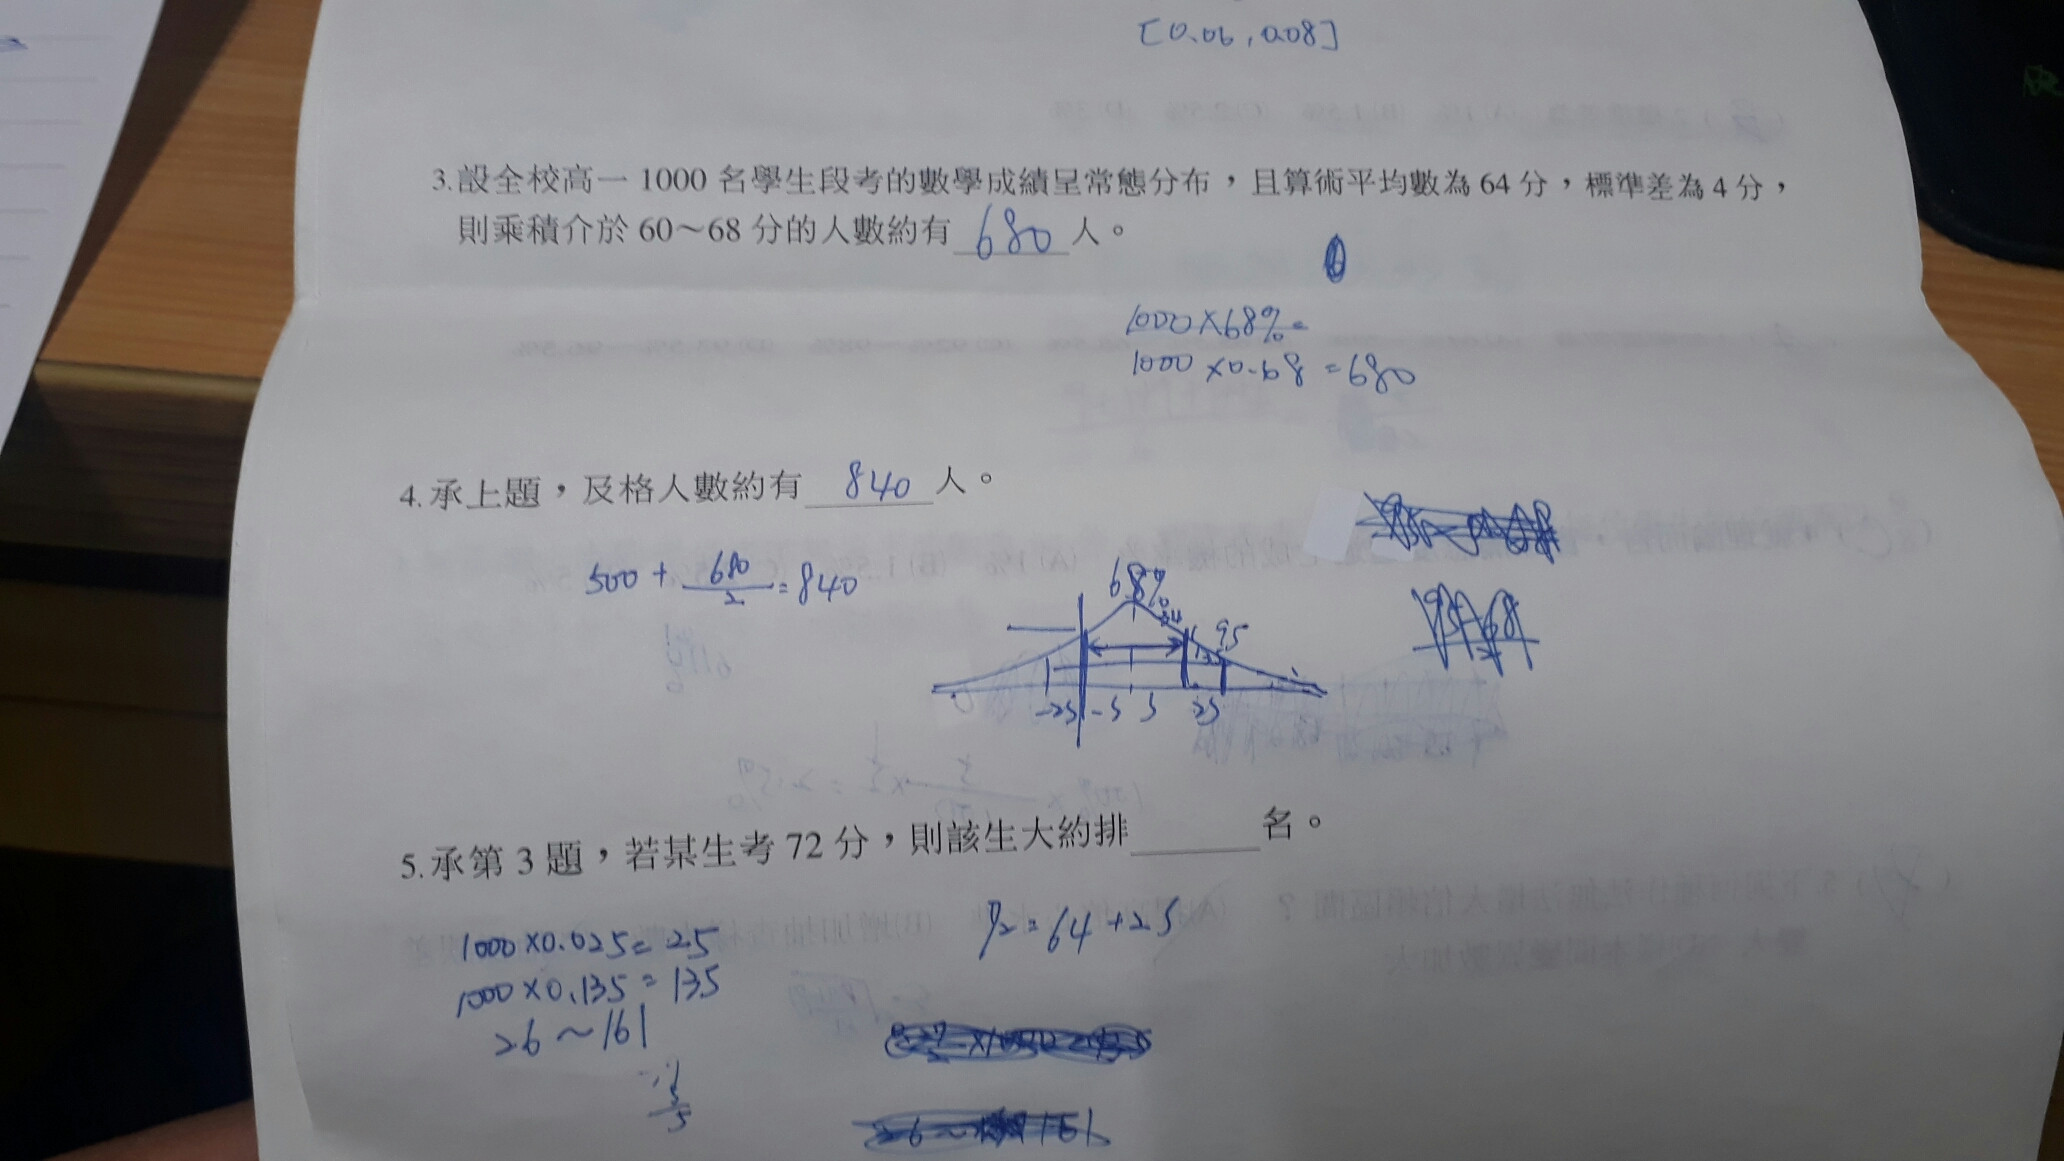 [0.06, 0.08]
3.設全校高一 1000 名學生段考的數學成績呈常態分布，且算術平均數為 64 分，標準差為 4 分，
則乘積介於 60～68 分的人數約有 680 人。
1000×68%=
1000×0.68=680
4.承上題，及格人數約有 840 人。
500+680/2=840
68%
95
-2S -S S 2S
5.承第 3 題，若某生考 72 分，則該生大約排____名。
72=64+2S
1000×0.025=25
1000×0.135=135
26～161